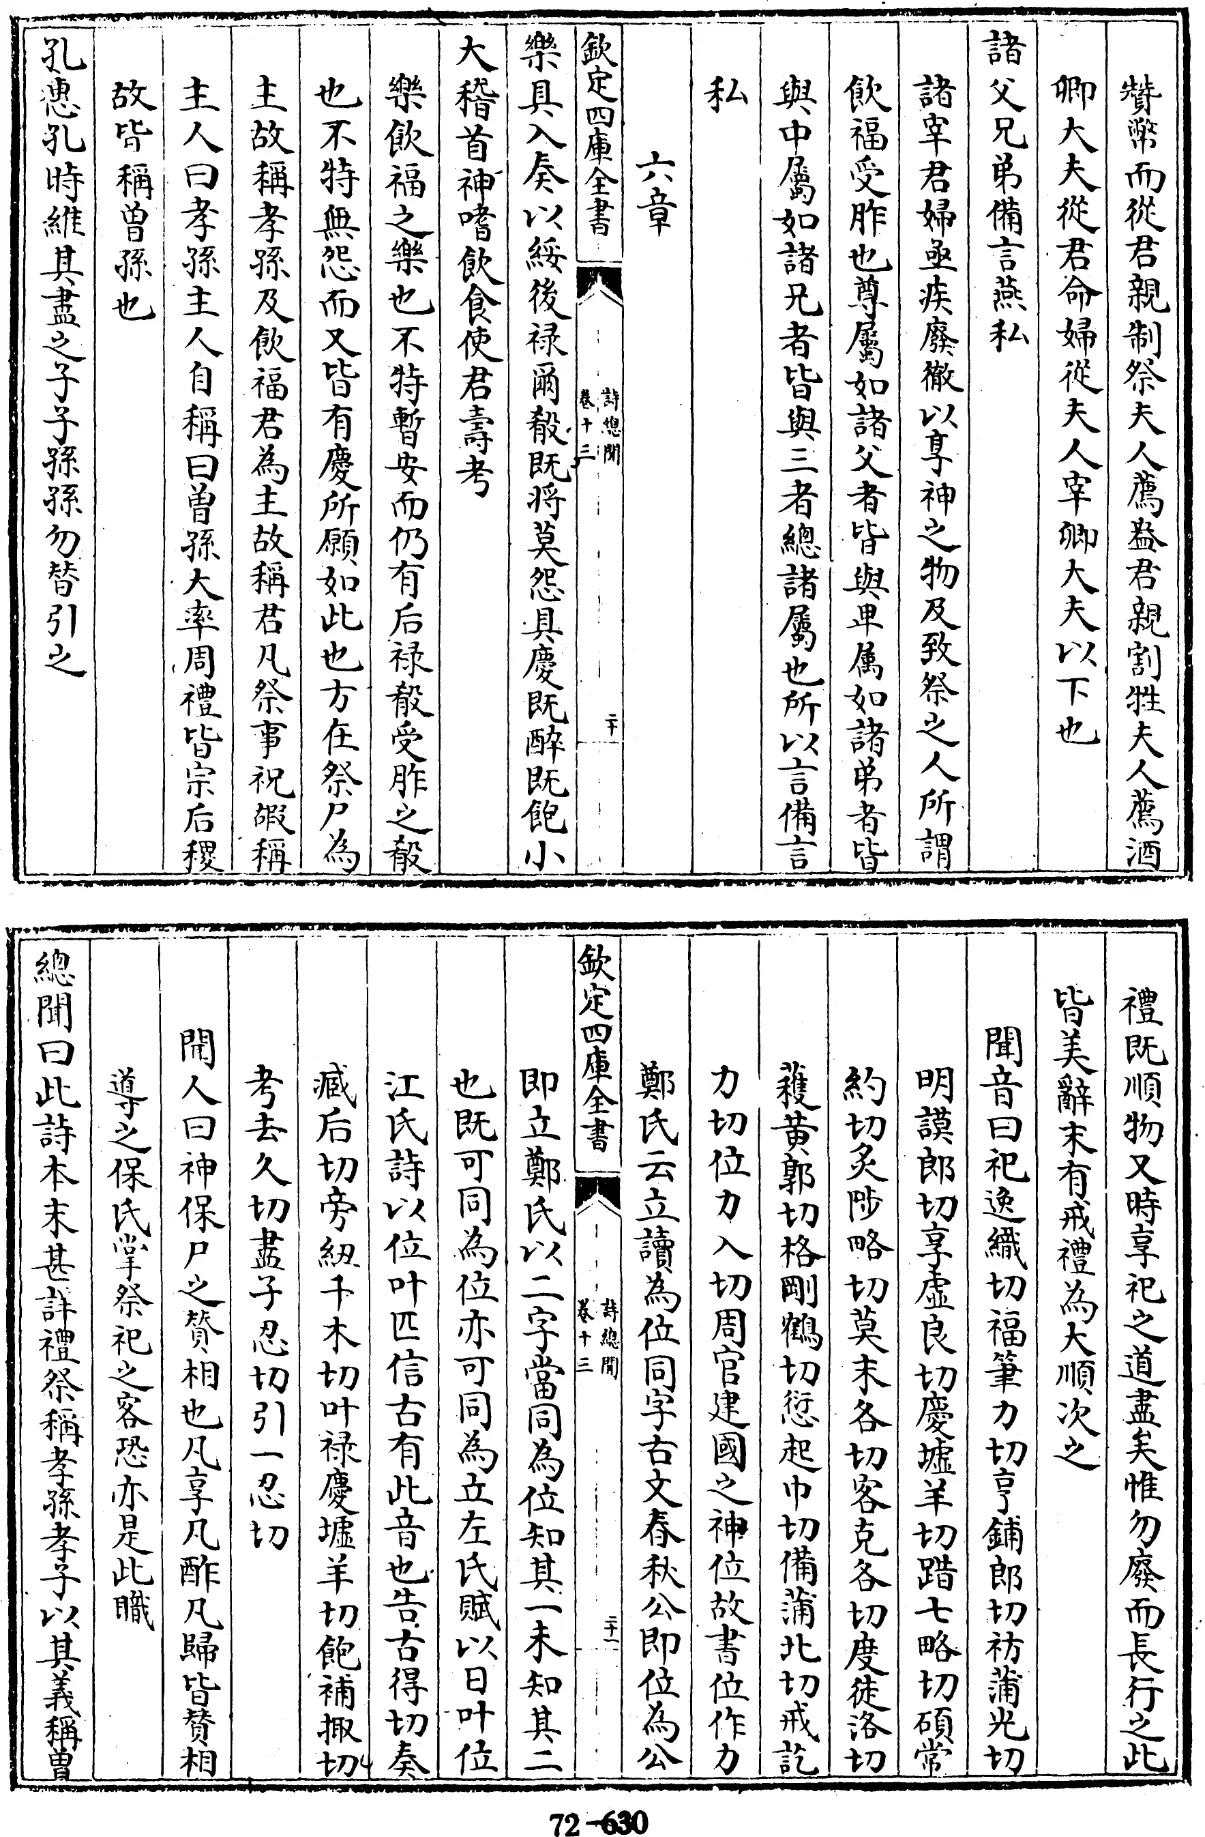 贊幣而從君親制祭夫人薦盎君親割牲夫人薦酒
卿大夫從君命婦從夫人宰卿大夫以下也
諸父兄弟備言燕私
諸宰君婦亟疾廢徹以享神之物及致祭之人所謂
飲福受胙也尊屬如諸父者皆與卑屬如諸弟者皆
與中屬如諸兄者皆與三者總諸屬也所以言備言
私
六章
欽定四庫全書
詩總聞
卷十三
二十
樂具入奏以綏後禄爾殽既將莫怨具慶既醉既飽小
大稽首神嗜飲食使君壽考
樂飲福之樂也不特暫安而仍有后禄殽受胙之殽
也不特無怨而又皆有慶所願如此也方在祭尸為
主故稱孝孫及飲福君為主故稱君凡祭事祝嘏稱
主人曰孝孫主人自稱曰曽孫大率周禮皆宗后稷
故皆稱曽孫也
孔惠孔時維其盡之子子孫孫勿替引之
禮既順物又時享祀之道盡矣惟勿廢而長行之此
皆美辭末有戒禮為大順次之
聞音曰祀逸織切福筆力切亨鋪郎切祊蒲光切
明謨郎切享虚良切慶墟羊切踖七略切碩常
約切炙陟略切莫末各切客克各切度徒洛切
蒦黄郭切格剛鶴切愆起巾切備蒲北切戒訖
力切位力入切周官建國之神位故書位作力
鄭氏云立讀為位同字古文春秋公即位為公
欽定四庫全書
詩總聞
卷十三
二十一
即立鄭氏以二字當同為位知其一未知其二
也既可同為位亦可同為立左氏賦以日叶位
江氏詩以位叶匹信古有此音也告古得切奏
滅后切旁紐千木切叶禄慶墟羊切飽補掫切
考去久切盡子忍切引一忍切
聞人曰神保尸之贊相也凡享凡酢凡歸皆贊相
導之保氏掌祭祀之客恐亦是此職
總聞曰此詩本末甚詳禮祭稱孝孫孝子以其義稱曽
72-630